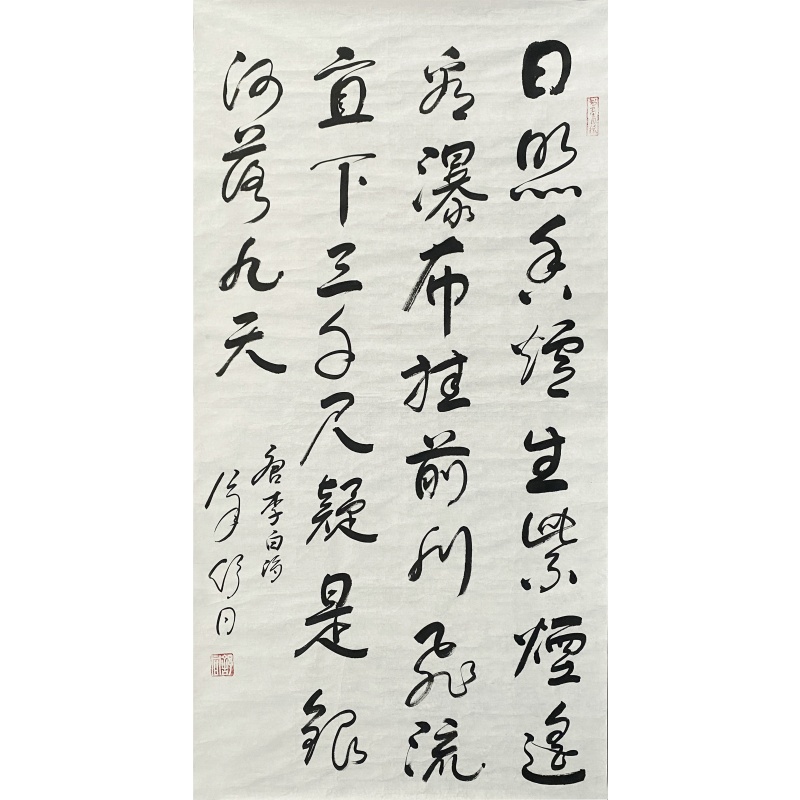 日照香爐生紫煙遙
看瀑布挂前川飛流
直下三千尺疑是銀
河落九天
唐李白詩